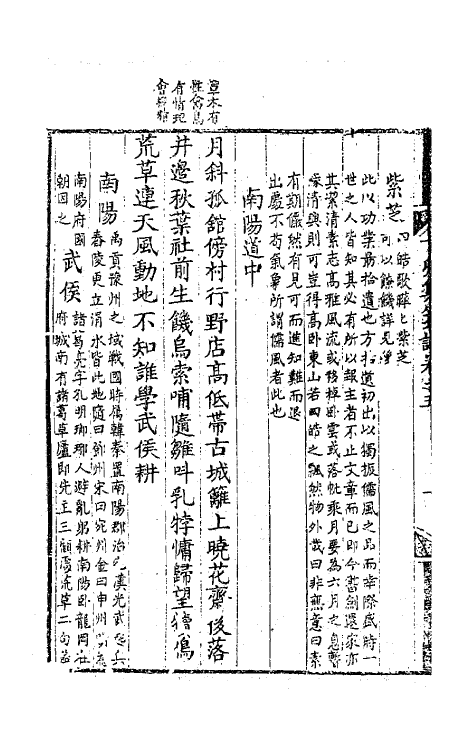 草木有
性禽鳥
有情
紫芝 四皓歌曄曄紫芝
可以
此以功業最拾遺也方拾遺初出以獨振儒風之品而幸際盛時一
世之人皆知其必有所以報主者不止文章而已即今書劍還家亦
其潔清素志高雅風流或移棹卧雲或落帆乘月要為六月之息暫
豪清興則可豈得高卧東山若四皓之飄然物外哉曰非無意曰素
有期儼然有見可而進知難而退
出處不苟氣象所謂儒風者此也
南陽道中
月斜孤館傍村行野店高低帶古城籬上曉花齋後落
井邊秋葉社前生饑烏索哺隨雛叫乳牸慵歸望犢鳴
荒草連天風動地不知誰學武侯耕
南陽 禹貢豫州之域戰國時属韓秦置南陽郡治宛漢光武起兵
舂陵更立淯水皆此地隨曰鄧州宋曰宛州金曰申州
南陽府國 武侯 諸葛亮字孔明瑯琊人避亂躬耕南陽卧龍岡在
朝因之 府城南有諸葛草廬即先主三顧處荒草二句